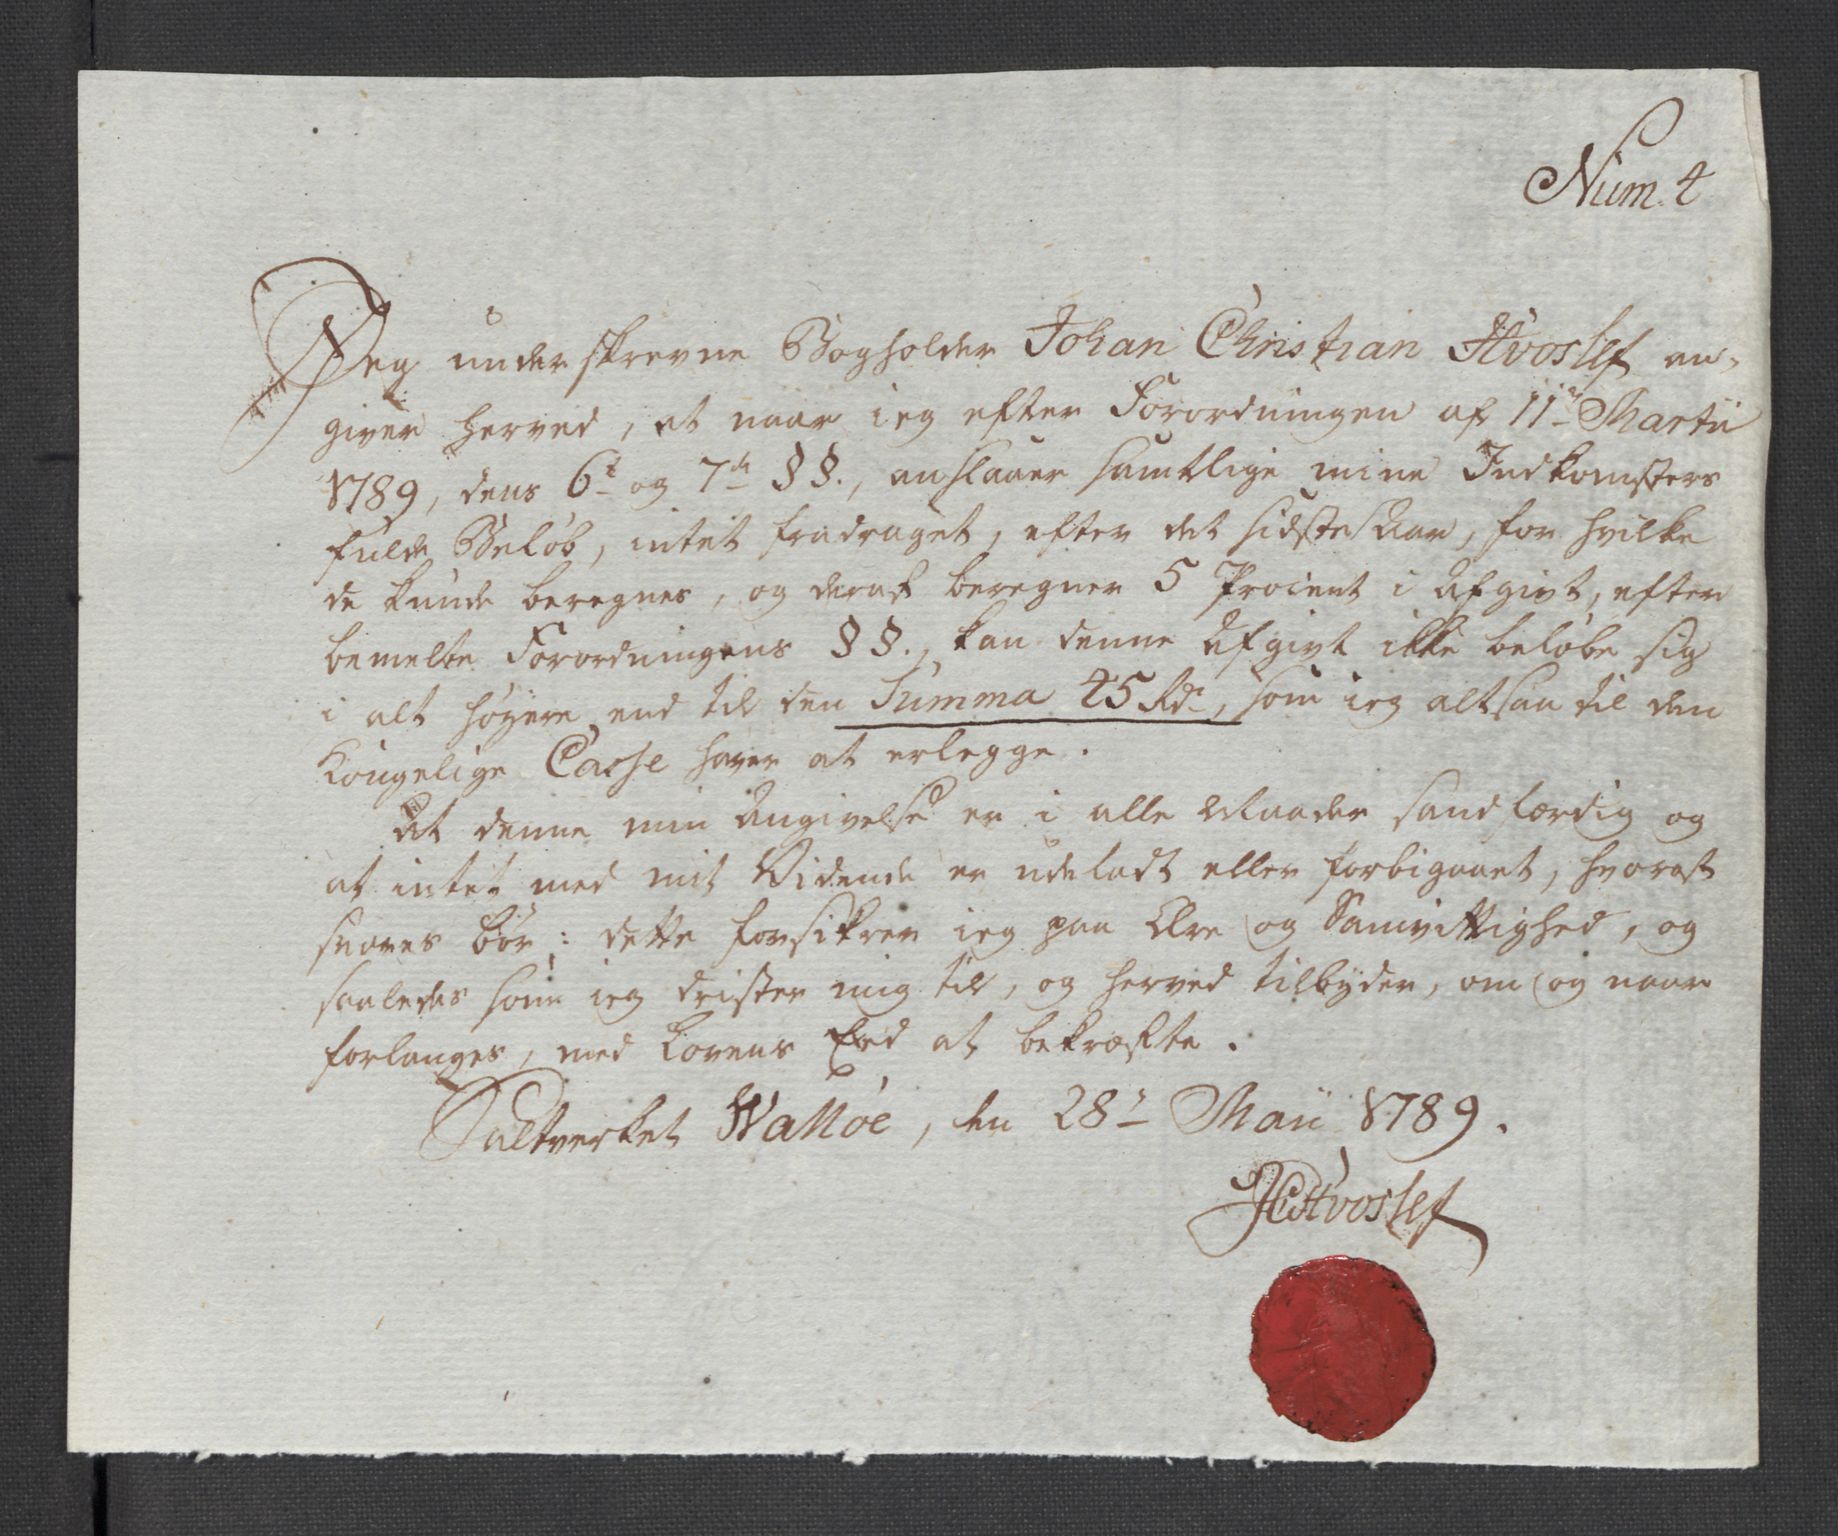 Num. 4
Jeg underskrevne Bogholder Johan Christian Hvoslef an-
giver herved, at naar ieg efter Forordningen af 11te Martii
1789, dens 6te og 7de §§., anslaaer samtlige mine Indkomsters
fulde Beløb, intet fradraget, efter det sidste Aar, for hvilke
de kunde beregnes, og deraf beregner 5 Procent i Afgivt, efter
bemelte Forordningens §§., kan denne Afgivt ikke beløbe sig
i alt høyere end til den Summa 45 Rdr, som ieg altsaa til den
Kongelige Casse haver at erlegge.
At denne min Angivelse er i alle Maader sandfærdig og
at intet med mit Vidende er udeladt eller forbigaaet, hvoraf
svares bør; dette forsikrer ieg paa Ære og Samvittighed, og
saaledes som ieg drister mig til, og herved tilbyder, om og naar
forlanges, med Lovens Eed at bekræfte.
Saltverket Walløe, den 28de Maii 1789.
JCHvoslef